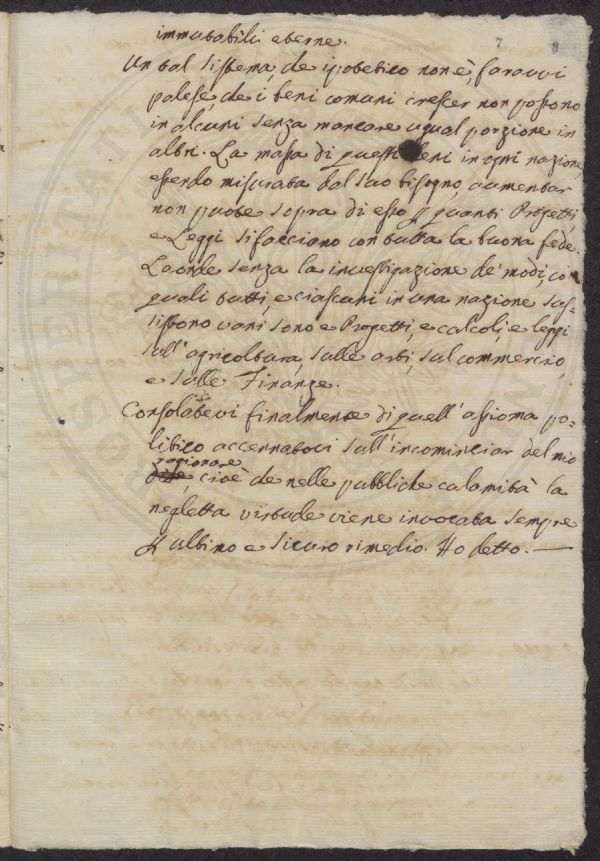 7 8
immutabili eterne.
Un tal sistema, che ipotetico non è, faravvi
palese, che i beni comuni crescer non possono
in alcuni senza mancare ugual porzione in
altri. La massa di questi beni in ogni nazione,
essendo misurata dal suo bisogno, aumentar
non puote sopra di esso p quanti Progetti,
e Leggi si facciano con tutta la buona fede.
Laonde senza la investigazione de' modi, co'
quali tutti, e ciascuni in una nazione sus=
sistono vani sono e Progetti, e calcoli, e leggi
sull' agricoltura, sulle arti, sul commercio,
e sulle Finanze.
Consolatevi finalmente di quell' assioma po=
litico accennatovi sull' incominciar del mio
ragionare
, cioè che nelle pubbliche calamità la
negletta virtude viene invocata sempre
p ultimo e sicuro rimedio. Ho detto. —